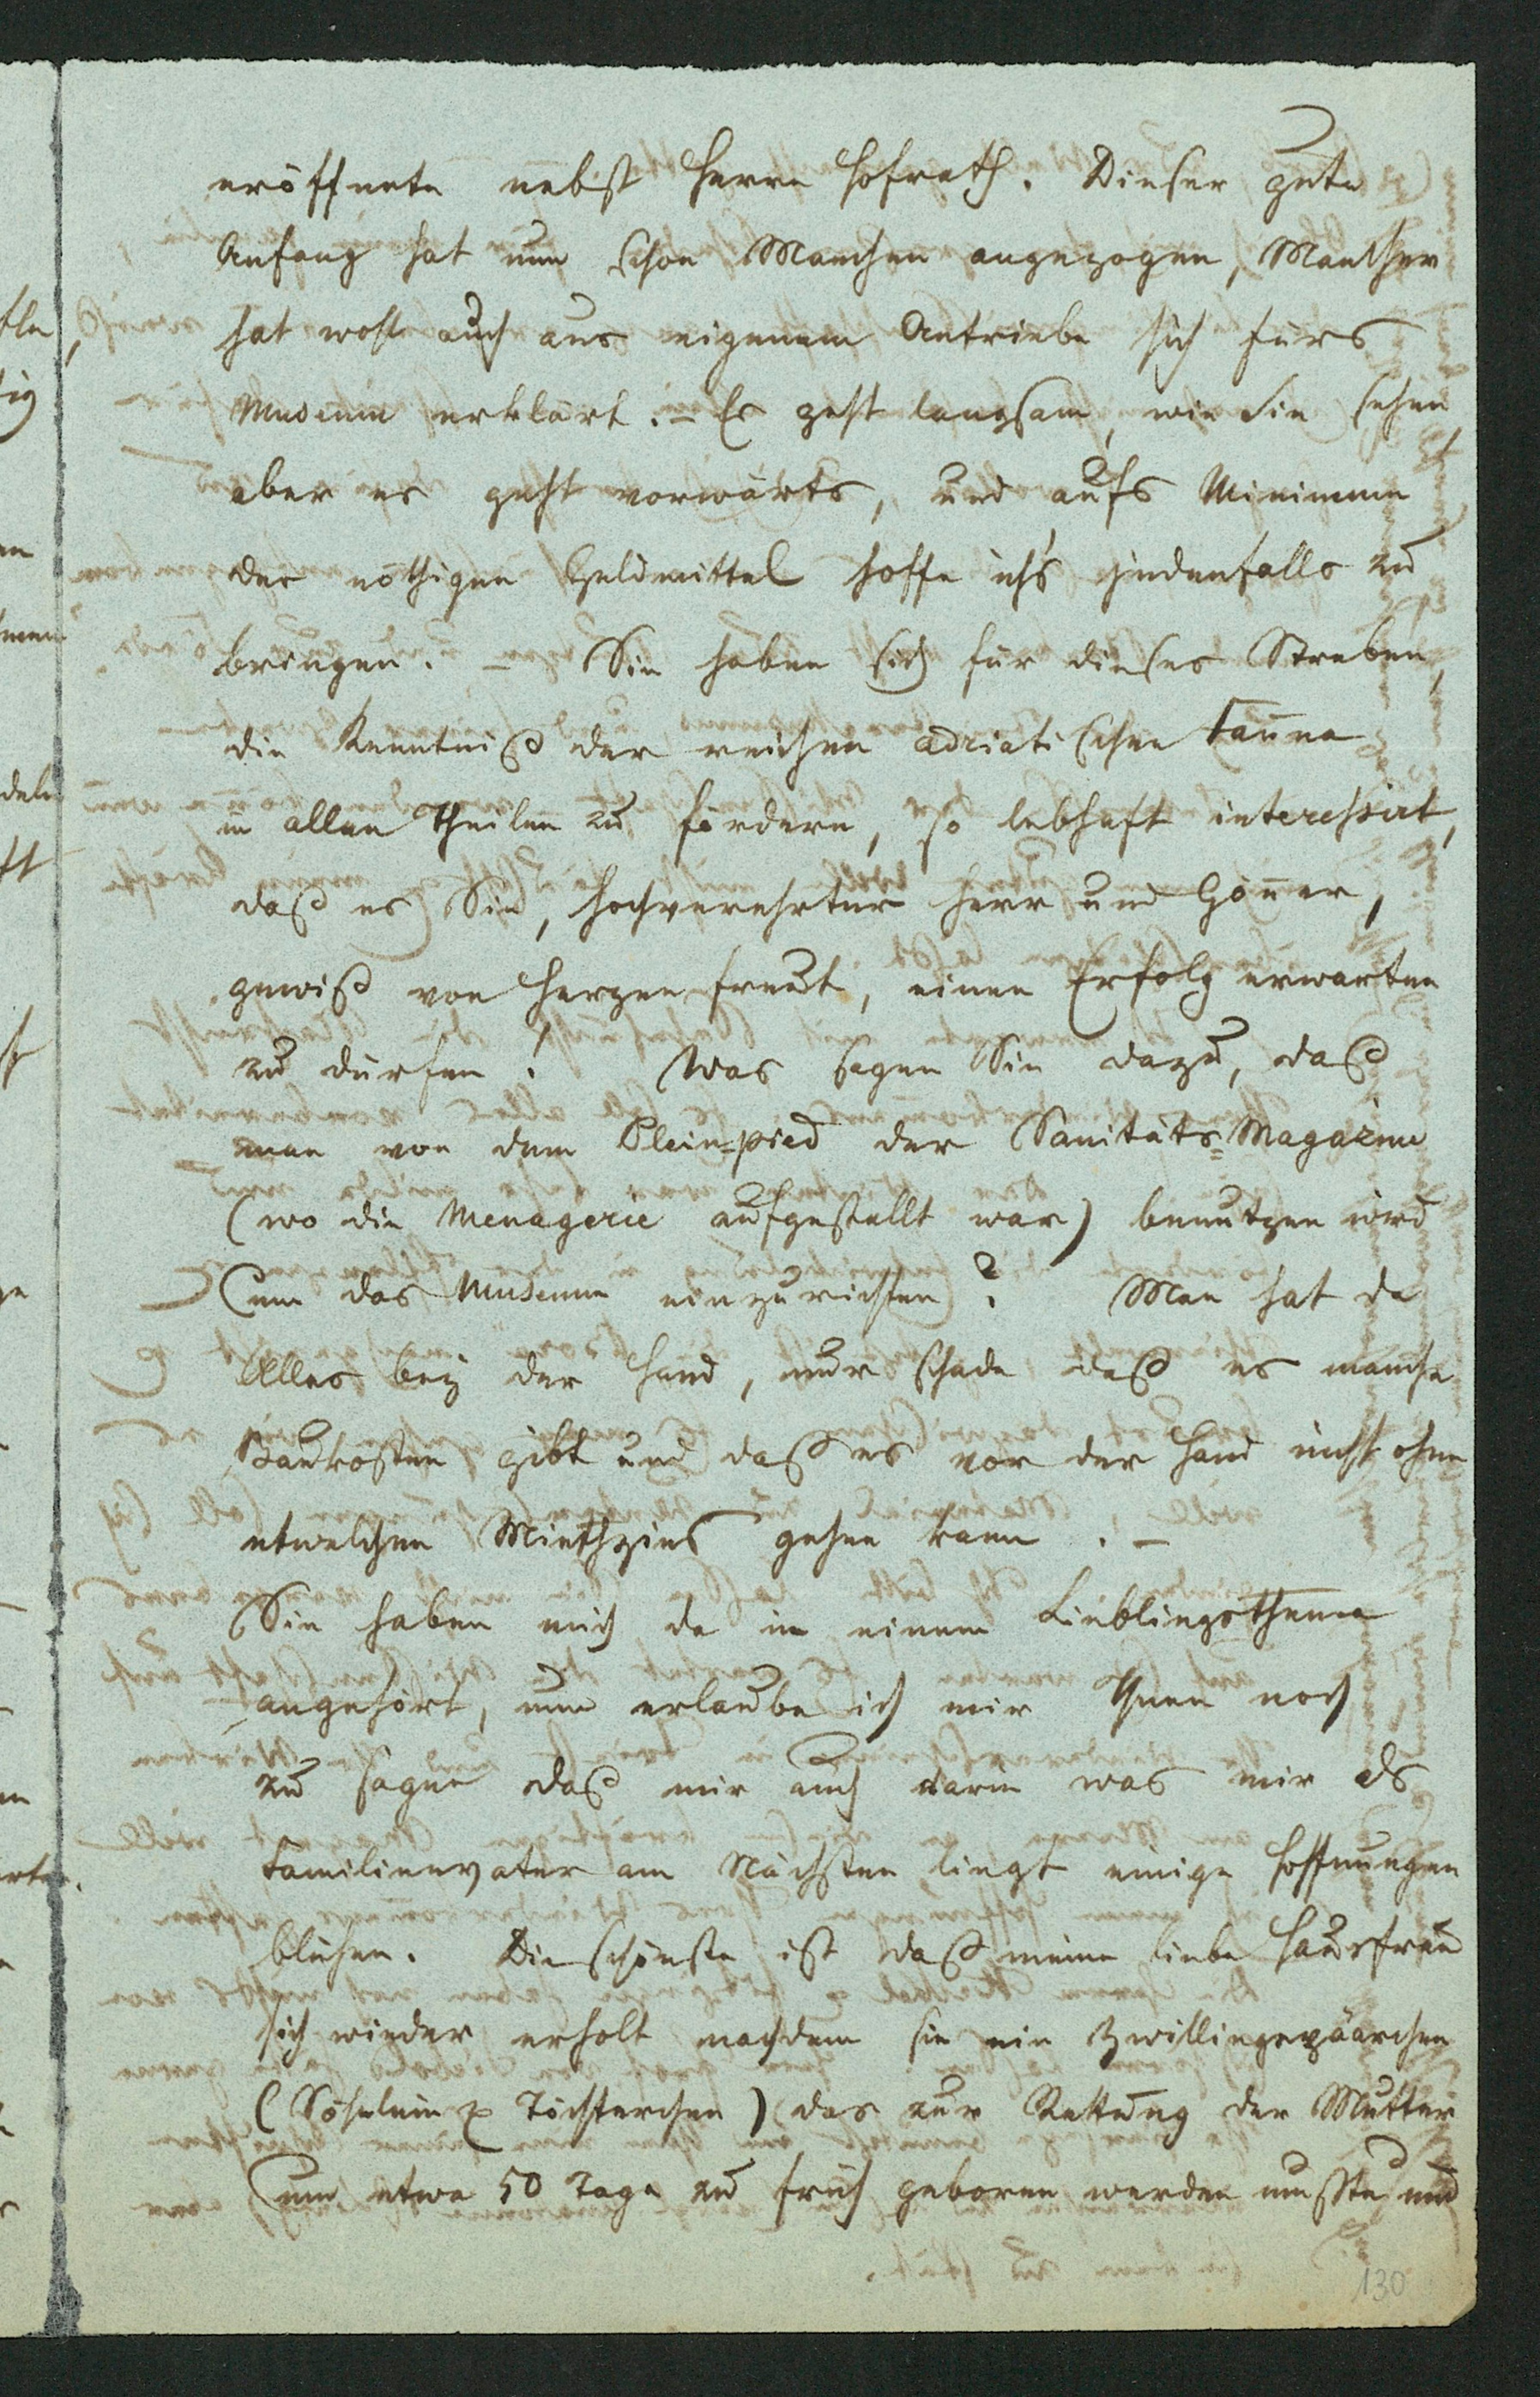 eröffnete nebst Herrn Hofrath. Dieser gute
Anfang hat nun schon Manchen angezogen, Mancher
hat wohl auch aus eigenem Antriebe sich fürs
Museum erklärt. – Es geht langsam, wie Sie sehen
aber es geht vorwärts, und aufs Minimum
der nöthigen Geldmittel hoffe ich's jedenfalls zu
bringen. – Sie haben sich für dieses Streben,
die Kenntniß der reichen adriatischen Fauna
in allen Theilen zu fördern, so lebhaft interessirt,
daß es Sie, hochverehrter Herr und Gönner,
gewiß von Herzen freut, einen Erfolg erwarten
zu dürfen! Was sagen Sie dazu, daß
man von dem Plein-pied der Sanitäts=Magazine
(wo die Menagerie aufgestellt war) benutzen wird
um das Museum einzurichten? Man hat da
Alles bey der Hand, nur schade daß es manche
Baukosten gibt und daß es vor der Hand nicht ohne
etwelchen Miethzins gehen kann. –
Sie haben mich da in einem Lieblingsthema
angehört, nun erlaube ich mir Ihnen noch
zu sagen daß mir auch darin was mir als
Familienvater am Nächsten liegt einige Hoffnungen
blühen. Die schönste ist daß meine liebe Hausfrau
sich wieder erholt nachdem sie ein Zwillingspäärchen
(Söhnlein & Töchterchen) das zur Rettung der Mutter
um etwa 50 Tage zu früh geboren werden mußte, und
130